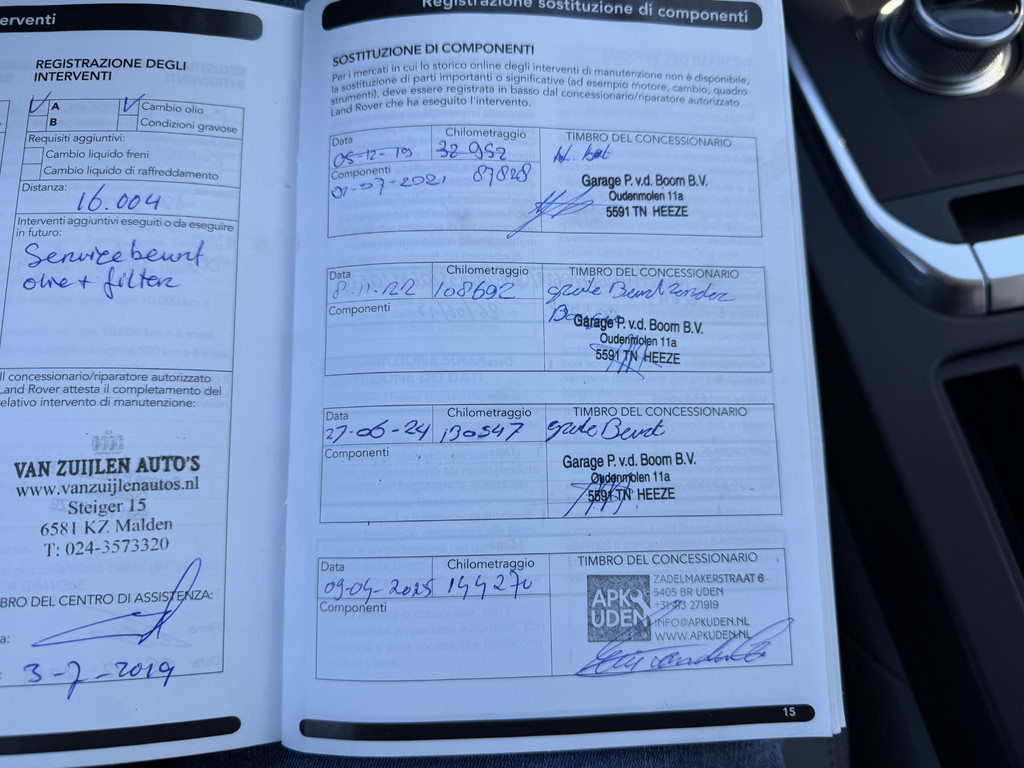 erventi
REGISTRAZIONE DEGLI
INTERVENTI
A
B
Cambio olio
Condizioni gravose
Requisiti aggiuntivi:
Cambio liquido freni
Cambio liquido di raffreddamento
Distanza:
16.004
Interventi aggiuntivi eseguiti o da eseguire
in futuro:
Servicebeurt
olie + filter
Il concessionario/riparatore autorizzato
Land Rover attesta il completamento del
relativo intervento di manutenzione:
VAN ZUIJLEN AUTO'S
www.vanzuijlenautos.nl
Steiger 15
6581 KZ Malden
T: 024-3573320
BRO DEL CENTRO DI ASSISTENZA:
a:
3-7-2019
Registrazione sostituzione di componenti
SOSTITUZIONE DI COMPONENTI
Per i mercati in cui lo storico online degli interventi di manutenzione non è disponibile,
la sostituzione di parti importanti o significative (ad esempio motore, cambio, quadro
strumenti), deve essere registrata in basso dal concessionario/riparatore autorizzato
Land Rover che ha eseguito l'intervento.
Data
Chilometraggio
TIMBRO DEL CONCESSIONARIO
05-12-19
32 952
Componenti
01-07-2021
87828
Garage P. v.d. Boom B.V.
Oudenmolen 11a
5591 TN HEEZE
Data
Chilometraggio
TIMBRO DEL CONCESSIONARIO
8.11.22
108692
grote Beurt zonder
Componenti
Garage P. v.d. Boom B.V.
Oudenmolen 11a
5591 TN HEEZE
Data
Chilometraggio
TIMBRO DEL CONCESSIONARIO
27-06-24
130547
grote Beurt
Componenti
Garage P. v.d. Boom B.V.
Oudenmolen 11a
5591 TN HEEZE
Data
Chilometraggio
TIMBRO DEL CONCESSIONARIO
09-04-2025
144270
Componenti
APK
UDEN
ZADELMAKERSTRAAT 6
5405 BR UDEN
+31 413 271919
INFO@APKUDEN.NL
WWW.APKUDEN.NL
15